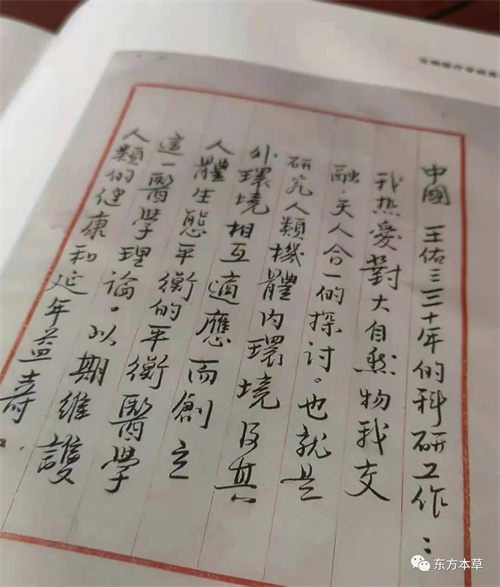 中國 王佑三三十年的科研工作：
我热愛對大自然物我交
融、天人合一的探討。也就是
研究人類機體内環境及其
外環境相互適應而創立
人體生態平衡的平衡醫學
這一醫學理論。以期維護
人類的健康和延年益寿.
东方本草